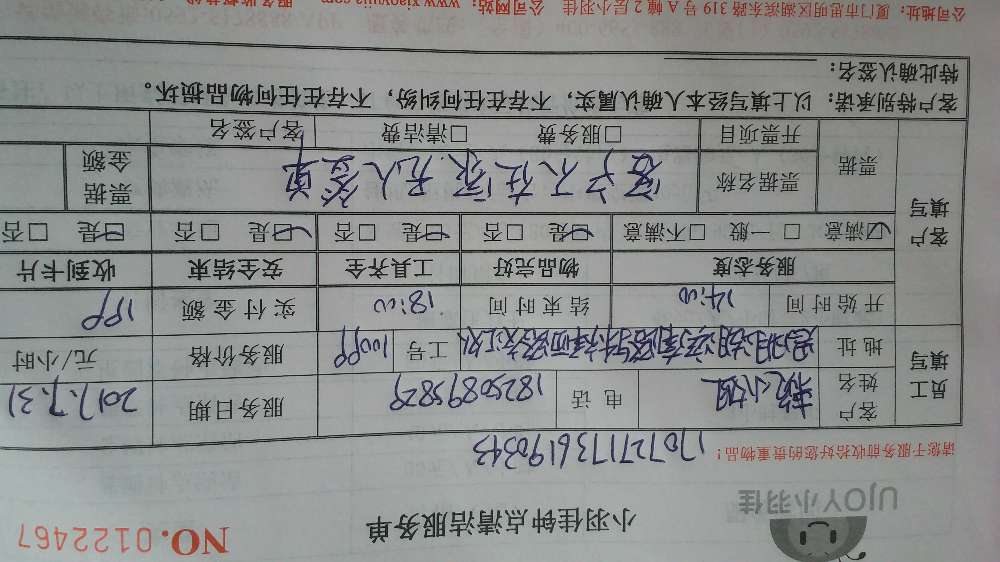 UJOY小羽佳
小羽佳钟点清洁服务单
NO.0122467
请您于服务前收拾好您的贵重物品!
1707271736190343
员工填写
客户姓名 赖小姐 电话 18250895829 服务日期 2017.7.31
地址 思明湖滨南路 工号 100 服务价格 元/小时
开始时间 14:00 结束时间 18:00 实付金额
客户填写
服务态度 物品完好 工具齐全 安全结束 收到卡片
☑满意 □一般 □不满意 ☑是 □否 ☑是 □否 ☑是 □否 ☑是 □否
票据 票据名称 客户不在家.无人签单 票据金额
开票项目 □服务费 □清洁费 客户签名
客户特别承诺:以上填写经本人确认属实,不存在任何纠纷,不存在任何物品损坏。
特此确认签名:
公司地址:厦门市思明区湖滨东路319号A幢2层小羽佳 公司网站:www.xiaoyujia.com